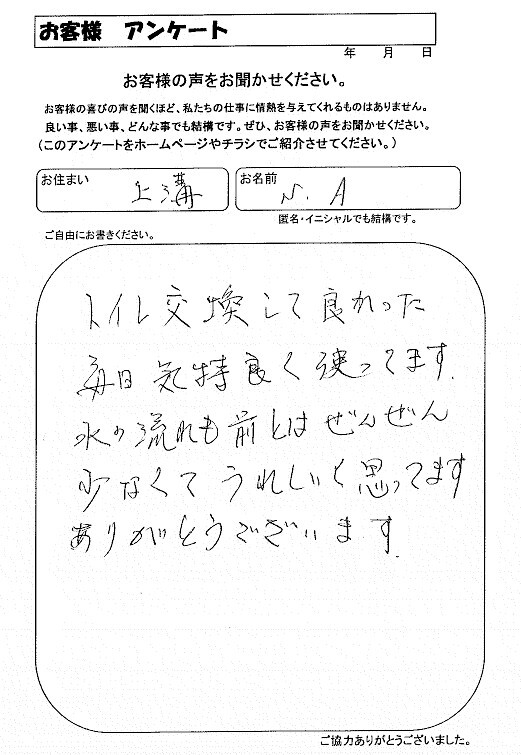 お客様 アンケート
年 月 日
お客様の声をお聞かせください。
お客様の喜びの声を聞くほど、私たちの仕事に情熱を与えてくれるものはありません。
良い事、悪い事、どんな事でも結構です。ぜひ、お客様の声をお聞かせください。
(このアンケートをホームページやチラシでご紹介させてください。)
お住まい 上溝
お名前 N. A
匿名・イニシャルでも結構です。
ご自由にお書きください。
トイレ交換して良かった
毎日気持良く使ってます.
水の流れも前とはぜんぜん
少なくてうれしいと思ってます
ありがとうございます.
ご協力ありがとうございました。